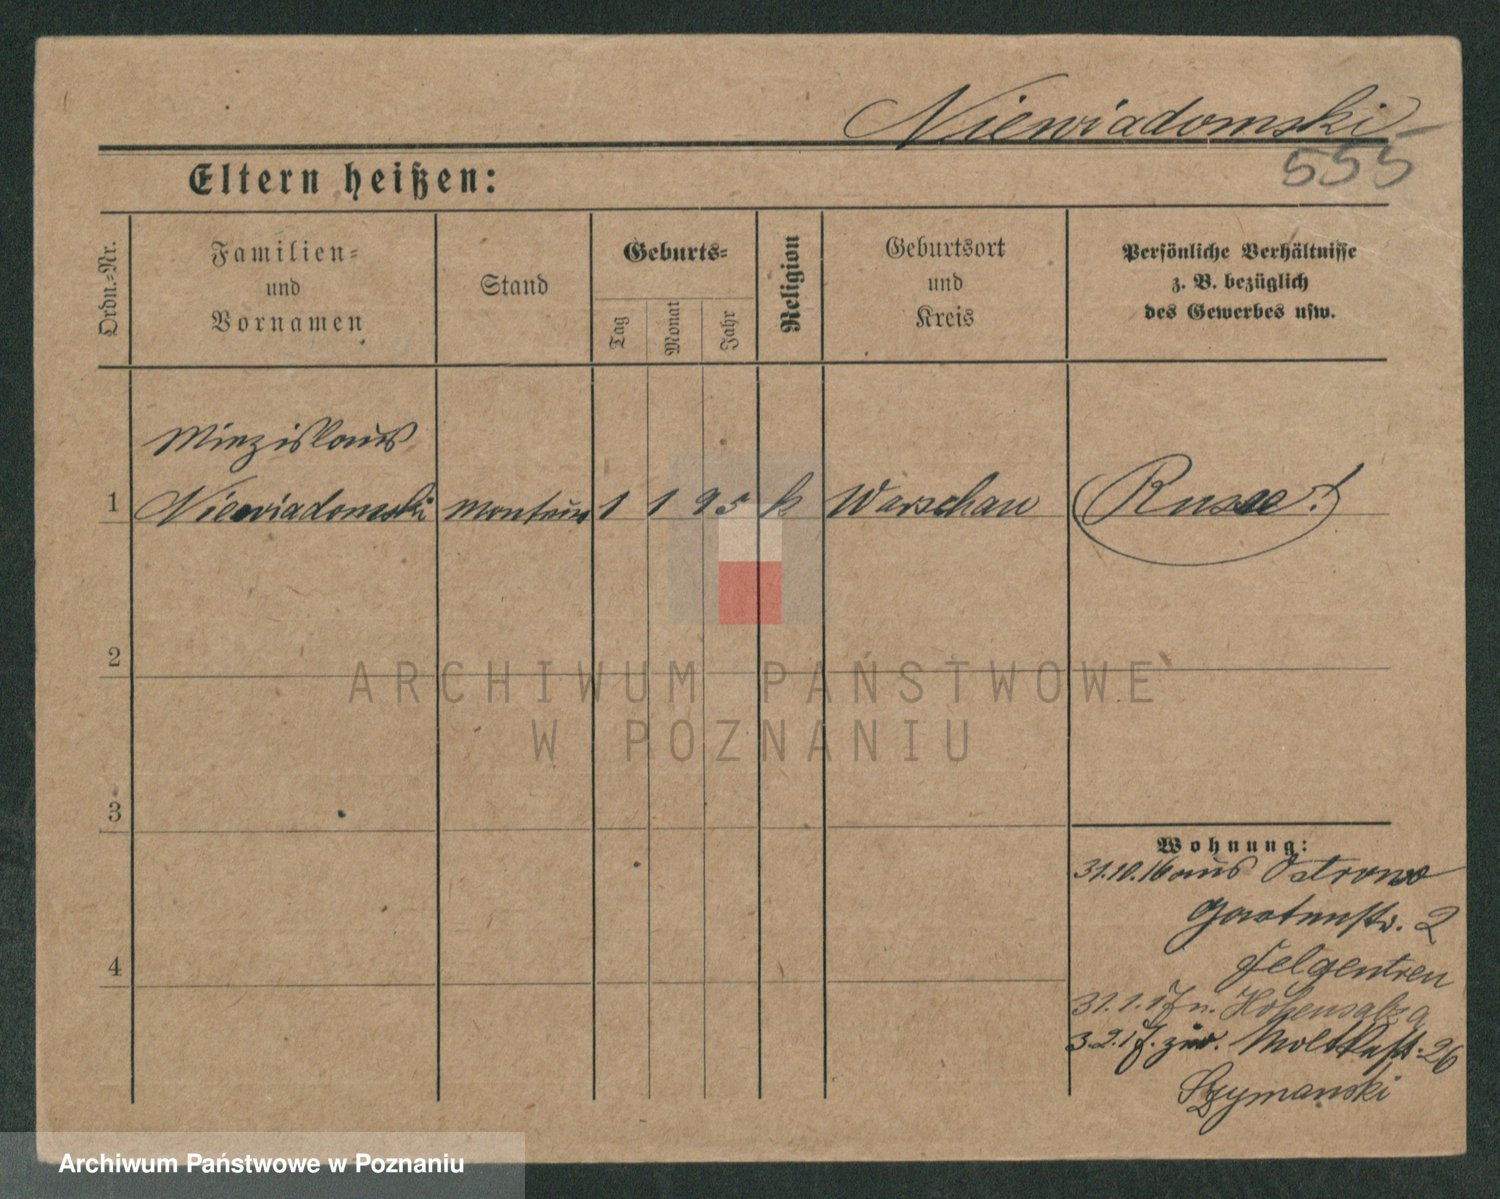 Niewiadomski
555
Eltern heißen:
Ordn.-Nr.
Familien-
und
Vornamen
Stand
Geburts-
Tag
Monat
Jahr
Religion
Geburtsort
und
Kreis
Persönliche Verhältnisse
z. B. bezüglich
des Gewerbes usw.
Miezislaus
1 Niewiadomski Monteur 1 1 95 k Warschau Russe!
2
3
4
Wohnung:
31.10.16 aus Ostrowo
Gartenstr. 2
Felgentreu
31.1.17 n. Hohensalza
3.2.17. zur. Moltkestr. 26
Szymanski
ARCHIWUM PAŃSTWOWE
W POZNANIU
Archiwum Państwowe w Poznaniu